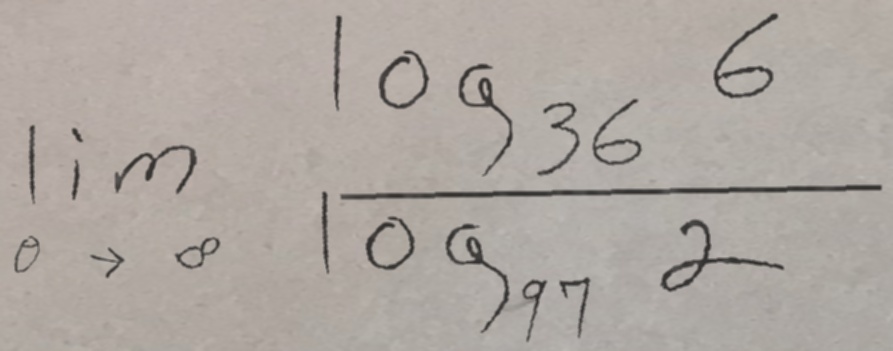 lim_{0 → ∞} \frac{log_{36} 6}{log_{97} 2}